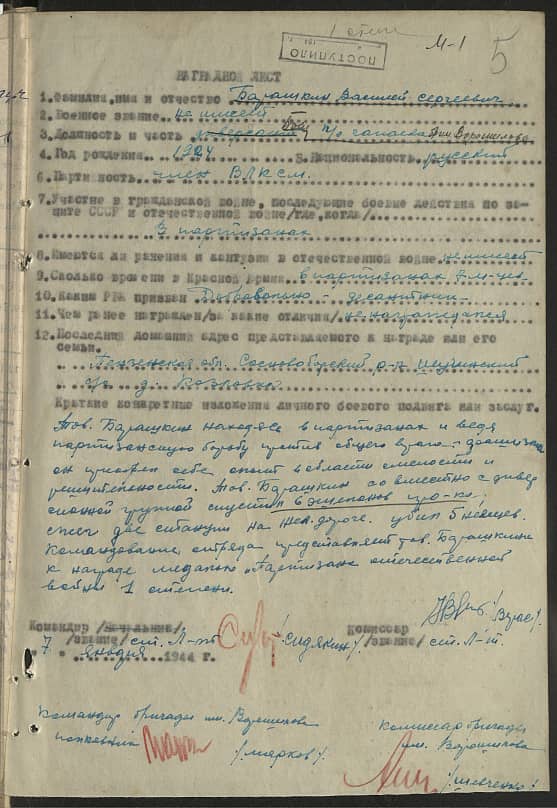 1 степ
ПОСТУПИЛО
М-1
5
НАГРАДНОЙ ЛИСТ
1.Фамилия,имя и отчество Барашкин Василий Сергеевич
2.Военное звание не имеет
3.Должность и часть п/о Чапаева им Ворошилова
4.Год рождения 1924 5.Национальность русский
6.Партийность член ВЛКСМ.
7.Участие в гражданской войне, последующие боевые действия по за-
щите СССР и отечественной войне/где,когда/
В партизанах
8.Имеются ли ранения и контузии в отечественной войне не имеет
9.Сколько времени в Красной Армии в партизанах
10.Каким РВК призван Добровольно - десантник
11.Чем ранее награжден/за какие отличия/ не награждался
12.Последний домашний адрес представляемого к награде или его
семьи.
Пензенская обл. Сосновоборский р-н
с/с д.
Краткие конкретные изложения личного боевого подвига или заслуг.
Тов. Барашкин находясь в партизанах и ведя
партизанскую борьбу против общего врага - фашизма
он приобрел себе опыт в области смелости и
решительности. Тов. Барашкин со вместно с дивер
сионной группой спустил 6 эшелонов пр-ка,
сжег две станции на жел. дороге. убил 5 немцев.
Командование отряда представляет тов. Барашкина
к награде медалью „Партизана отечественной
войны 1 степени.
Командир /Начальник/ /Сидякин/ Комиссар
/звание/ ст. Л-т /звание/ ст. Л-т
7 января 1944 г.
Командир бригады им. Ворошилова Комиссар бригады
полковник /Марков/ им. Ворошилова
/Шевченко/